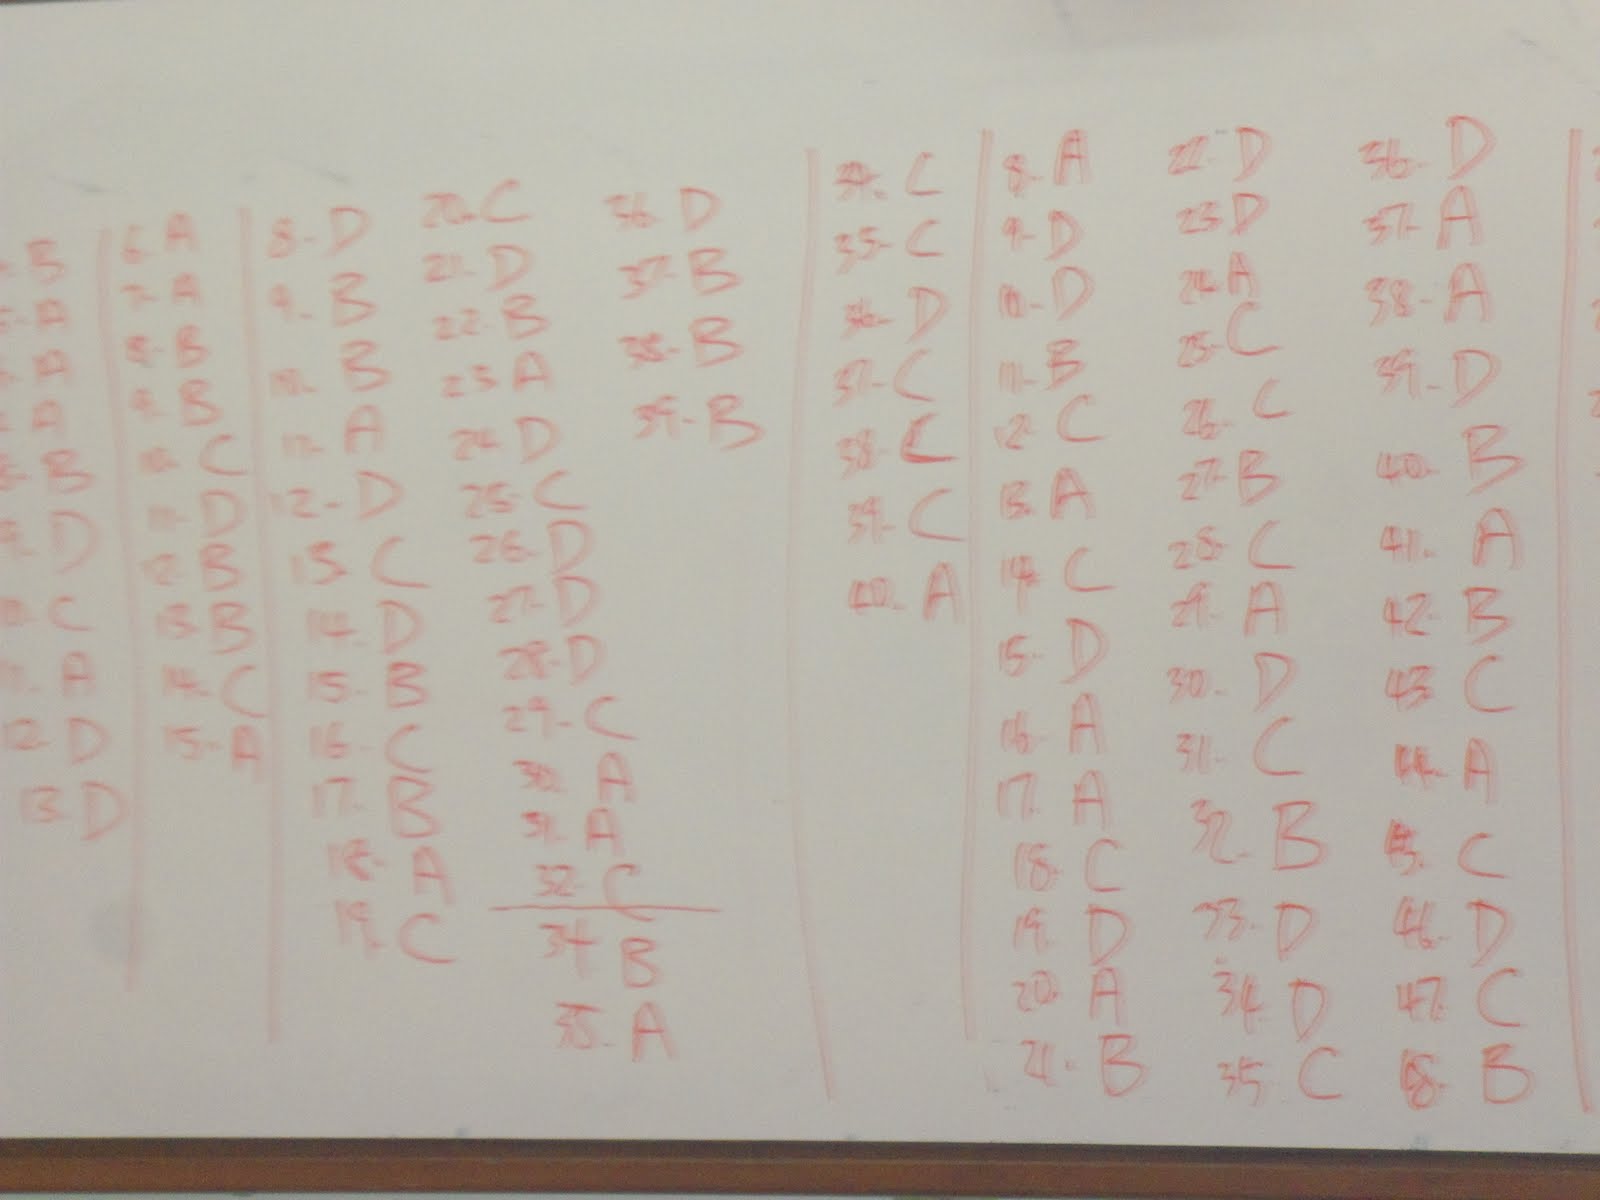 B
A
A
A
B
9. D
10. C
11. A
12. D
13. D
6. A
7. A
8. B
9. B
10. C
11. D
12. B
13. B
14. C
15. A
8. D
9. B
10. B
11. A
12. D
13. C
14. D
15. B
16. C
17. B
18. A
19. C
20. C
21. D
22. B
23 A
24. D
25. C
26. D
27. D
28. D
29. C
30. A
31. A
32. C
34. B
35. A
36. D
37. B
38. B
39. B
34. C
35. C
36. D
37. C
38. C
39. C
40. A
8. A
9. D
10. D
11. B
12. C
13. A
14. C
15. D
16. A
17. A
18. C
19. D
20. A
21. B
22. D
23 D
24. A
25. C
26. C
27. B
28. C
29. A
30. D
31. C
32. B
33. D
34. D
35. C
36. D
37. A
38. A
39. D
40. B
41. A
42. B
43 C
44. A
45. C
46. D
47. C
48. B